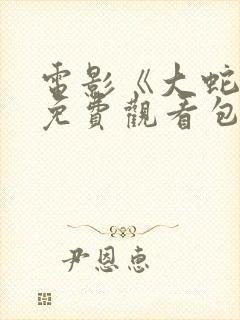 電影《大蛇
免費觀看包
尹恩惠